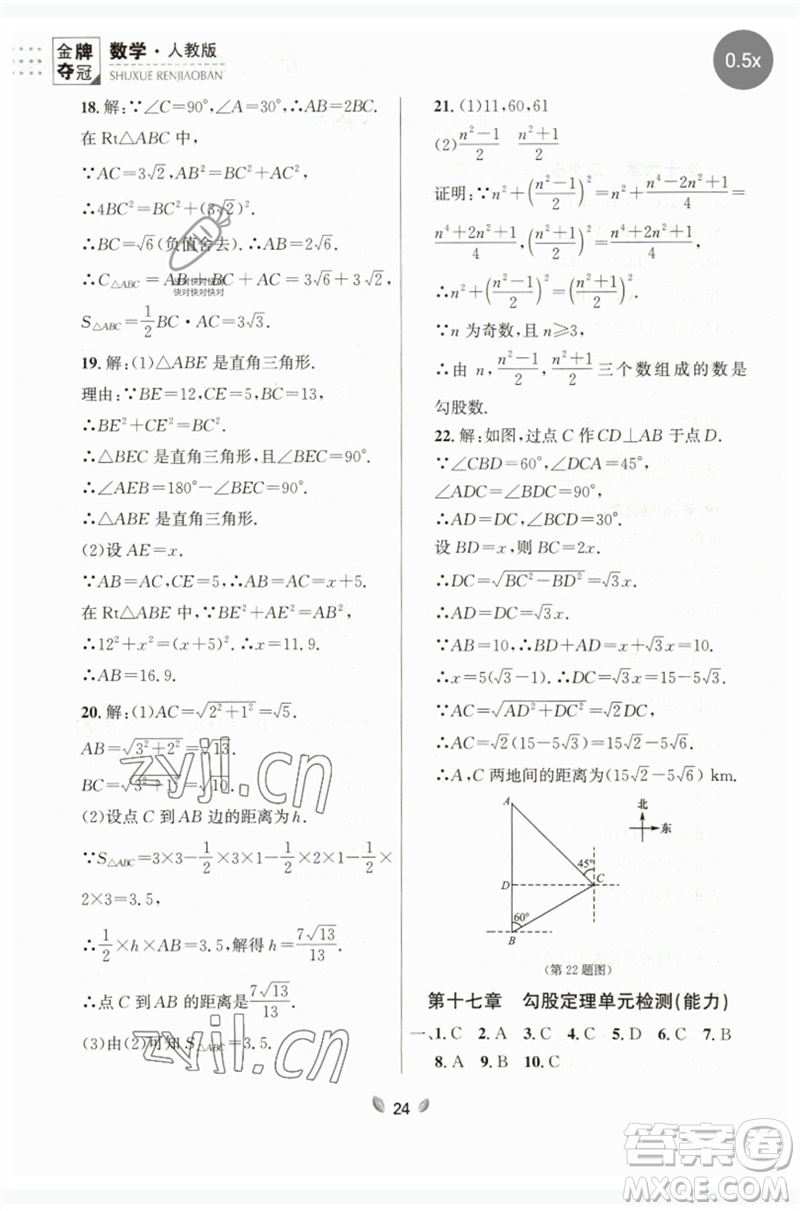 金牌
夺冠
数学·人教版
SHUXUE RENJIAOBAN
0.5x
18. 解：∵∠C=90°,∠A=30°,∴AB=2BC.
在 Rt△ABC 中，
∵AC=3√2, AB²=BC²+AC²,
∴4BC²=BC²+(3√2)².
∴BC=√6(负值舍去). ∴AB=2√6.
∴C△ABC=AB+BC+AC=3√6+3√2,
快对快对快对
快对快对快对
S△ABC=1/2 BC·AC=3√3.
19. 解：(1)△ABE 是直角三角形.
理由：∵BE=12,CE=5,BC=13,
∴BE²+CE²=BC².
∴△BEC 是直角三角形，且∠BEC=90°.
∴∠AEB=180°－∠BEC=90°.
∴△ABE 是直角三角形.
(2)设 AE=x.
∵AB=AC,CE=5,∴AB=AC=x+5.
在 Rt△ABE 中，∵BE²+AE²=AB²,
∴12²+x²=(x+5)².∴x=11.9.
∴AB=16.9.
20. 解：(1)AC=√(2²+1²)=√5.
AB=√(3²+2²)=√13.
BC=√(3²+1²)=√10.
(2)设点 C 到 AB 边的距离为 h.
∵S△ABC=3×3－1/2×3×1－1/2×1×2－1/2×
2×3=3.5,
∴1/2×h×AB=3.5,解得 h=7√13/13.
∴点 C 到 AB 边的距离为 7√13/13.
(3)由(2)可知 S△ABC=3.5.
zyjl.cn
zyjl.cn
21. (1)11,60,61
(2) (n²－1)/2 (n²+1)/2
证明：∵n²+((n²－1)/2)²=n²+(n⁴－2n²+1)/4=
(n⁴+2n²+1)/4, ((n²+1)/2)²=(n⁴+2n²+1)/4,
∴n²+((n²－1)/2)²=((n²+1)/2)².
∵n 为奇数，且 n≥3,
∴由 n, (n²－1)/2, (n²+1)/2 三个数组成的数是
勾股数.
22. 解：如图，过点 C 作 CD⊥AB 于点 D.
∵∠CBD=60°,∠DCA=45°,
∴AD=DC,∠BCD=30°.
设 BD=x,则 BC=2x.
∴DC=√(BC²－BD²)=√3x.∴AD=√3x.
∵AB=10,∴BD+AD=x+√3x=10.
∴x=5(√3－1).∴DC=√3x=15－5√3.
∵AC=√(AD²+DC²)=√2DC,
∴AC=√2(15－5√3)=15√2－5√6.
∴A,C 两地间的距离为(15√2－5√6) km.
A
北
东
45°
D
C
60°
B
(第 22 题图)
第十七章 勾股定理单元检测(能力)
一、1. C 2. A 3. C 4. C 5. D 6. C 7. B
8. A 9. B 10. C
24
答案卷
MXQE.COM